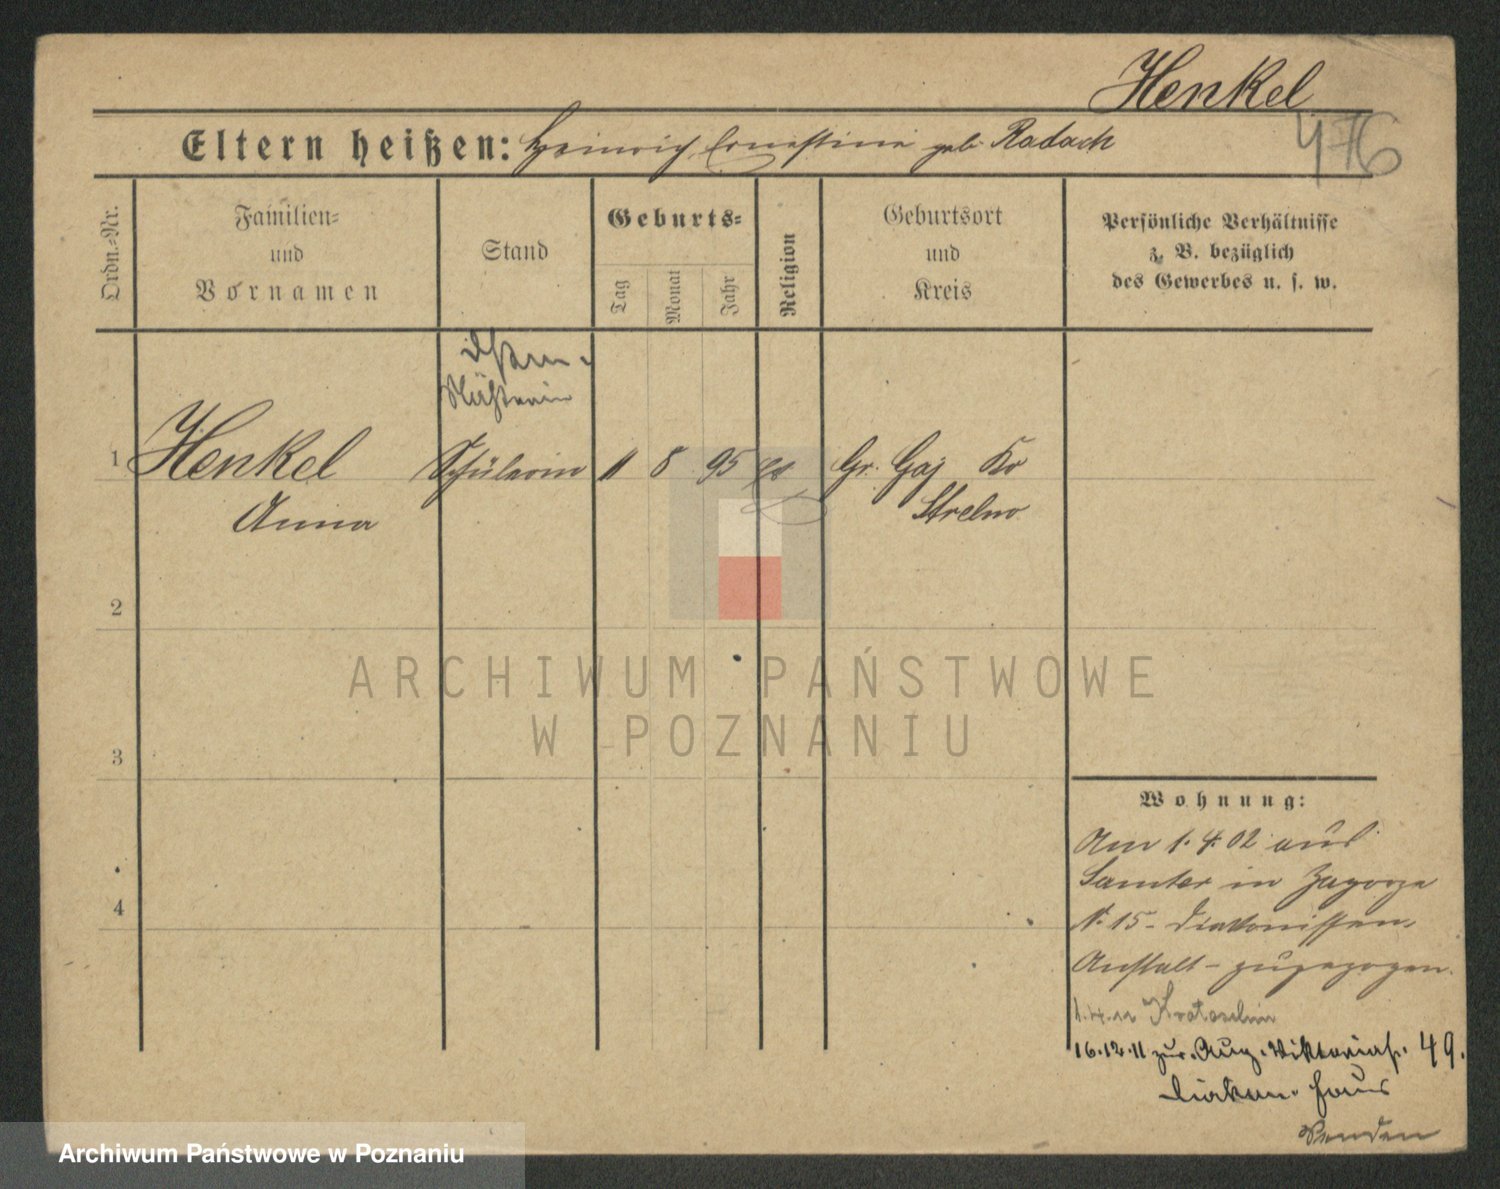 Henkel
476
Eltern heißen: Heinrich Ernestine geb. Radack
Ordn.-Nr.
Familien-
und
Vornamen
Stand
Geburts-
Tag
Monat
Jahr
Religion
Geburtsort
und
Kreis
Persönliche Verhältnisse
z. B. bezüglich
des Gewerbes u. s. w.
1 Henkel Schülerin 11 8 95 Gr. Gaj Kr
Anna Strelno
2
3
4
ARCHIWUM PAŃSTWOWE
W POZNANIU
Wohnung:
Am 1.4.02 aus
Samter in Zagorze
N. 15 - Diakonissen-
Anstalt - zugezogen.
Krotoschin
16.12.11 zur. Aug. Viktoriastr. 49.
Diakon. haus
Archiwum Państwowe w Poznaniu